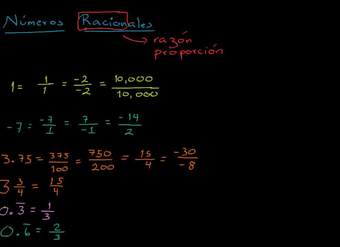 Números Racionales
razón
proporción
1 = 1/1 = -2/-2 = 10,000/10,000
-7 = -7/1 = 7/-1 = -14/2
3.75 = 375/100 = 750/200 = 15/4 = -30/-8
3 3/4 = 15/4
0.3̅ = 1/3
0.6̅ = 2/3